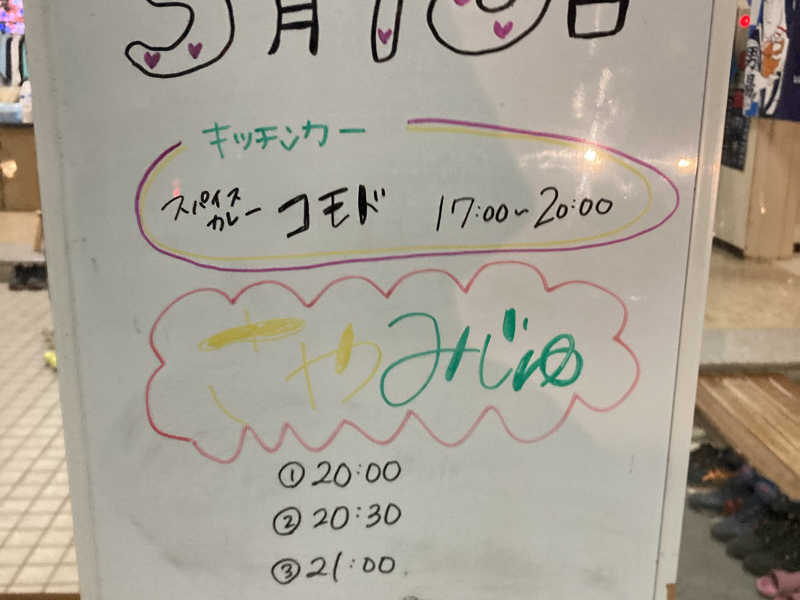 5月18日
キッチンカー
スパイス
カレー コモド 17:00~20:00
さやみじゅ
①20:00
②20:30
③21:00